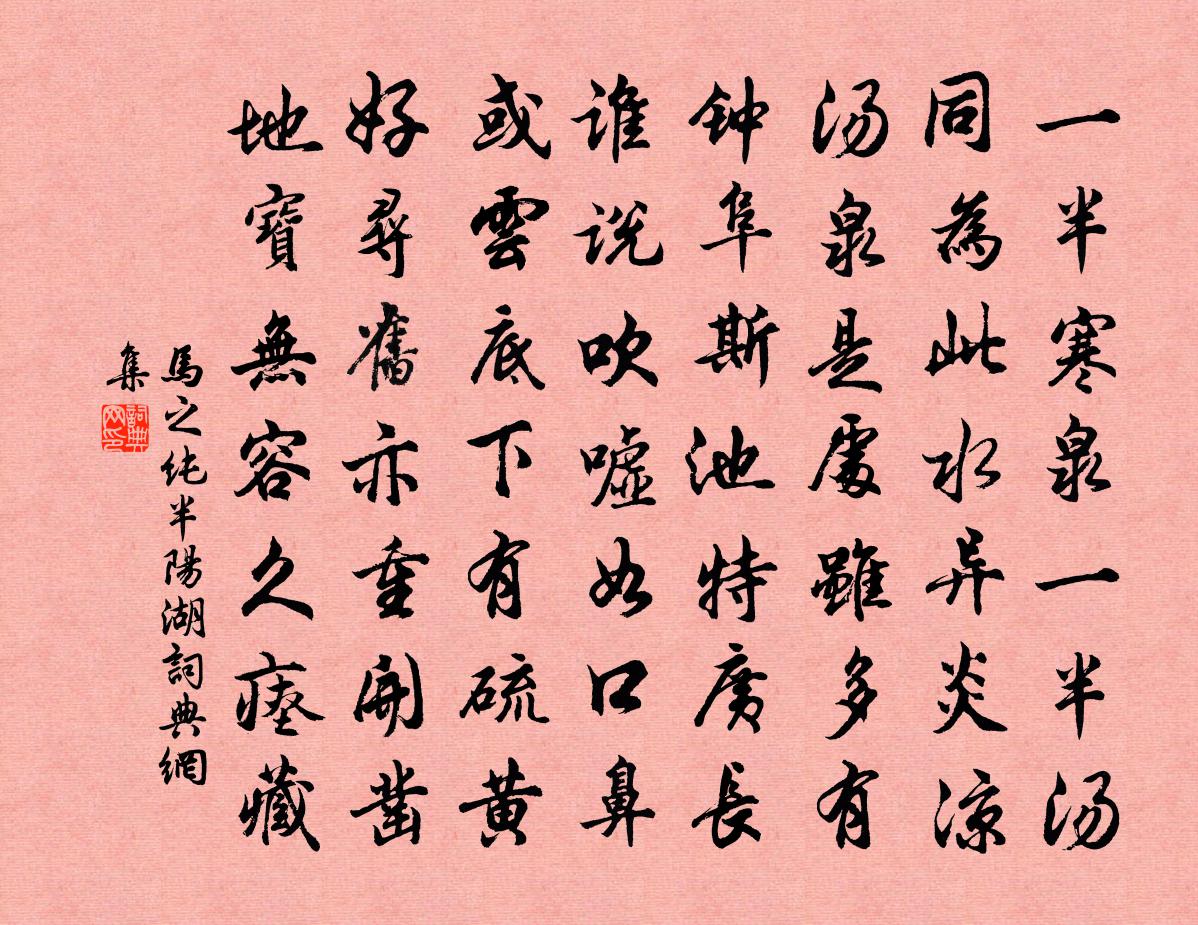 一半寒泉一半汤
同為此水异炎凉
汤泉是處雖多有
钟阜斯池特廣長
谁说吹嘘如口鼻
或雲底下有硫黄
好尋舊亦重開凿
地寶無容久瘗藏
馬之纯半陽湖詞典網
集
詞典网印